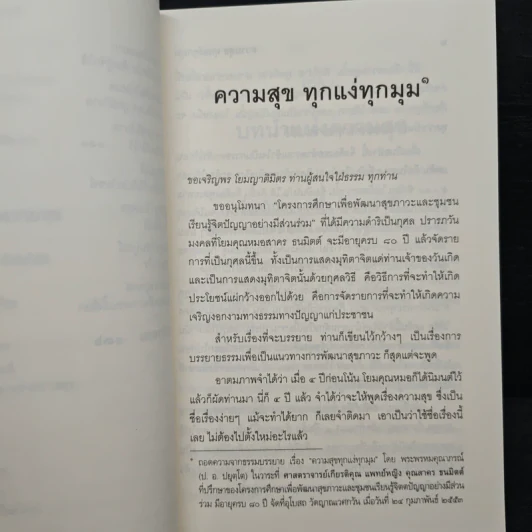 ความสุข ทุกแง่ทุกมุม๑
ขอเจริญพร โยมญาติมิตร ท่านผู้สนใจใฝ่ธรรม ทุกท่าน
ขออนุโมทนา "โครงการศึกษาเพื่อพัฒนาสุขภาวะและชุมชน
เรียนรู้จิตปัญญาอย่างมีส่วนร่วม" ที่ได้มีความดำริเป็นกุศล ปรารภวัน
มงคลที่โยมคุณหมอสาคร ธนมิตต์ จะมีอายุครบ ๘๐ ปี แล้วจัดราย
การที่เป็นกุศลนี้ขึ้น ทั้งเป็นการแสดงมุทิตาจิตแด่ท่านเจ้าของวันเกิด
และเป็นการแสดงมุทิตาจิตนั้นด้วยกุศลวิธี คือวิธีการที่จะทำให้เกิด
ประโยชน์แผ่กว้างออกไปด้วย คือการจัดรายการที่จะทำให้เกิดความ
เจริญงอกงามทางธรรมทางปัญญาแก่ประชาชน
สำหรับเรื่องที่จะบรรยาย ท่านก็เขียนไว้กว้างๆ เป็นเรื่องการ
บรรยายธรรมเพื่อเป็นแนวทางการพัฒนาสุขภาวะ ก็สุดแต่จะพูด
อาตมภาพจำได้ว่า เมื่อ ๔ ปีก่อนโน้น โยมคุณหมอก็ได้นิมนต์ไว้
แล้วก็ผัดท่านมา นี่ก็ ๔ ปี แล้ว จำได้ว่าจะให้พูดเรื่องความสุข ซึ่งเป็น
ชื่อเรื่องง่ายๆ แม้จะทำได้ยาก ก็เลยจำติดมา เอาเป็นว่าใช้ชื่อเรื่องนี้
เลย ไม่ต้องไปตั้งใหม่อะไรแล้ว
๑ ถอดความจากธรรมบรรยาย เรื่อง "ความสุขทุกแง่ทุกมุม" โดย พระพรหมคุณาภรณ์
(ป. อ. ปยุตฺโต) ในวาระที่ ศาสตราจารย์เกียรติคุณ แพทย์หญิง คุณสาคร ธนมิตต์
ที่ปรึกษาของโครงการศึกษาเพื่อพัฒนาสุขภาวะและชุมชนเรียนรู้จิตปัญญาอย่างมีส่วน
ร่วม มีอายุครบ ๘๐ ปี จัดที่อุโบสถ วัดญาณเวศกวัน เมื่อวันที่ ๒๔ กุมภาพันธ์ ๒๕๕๓